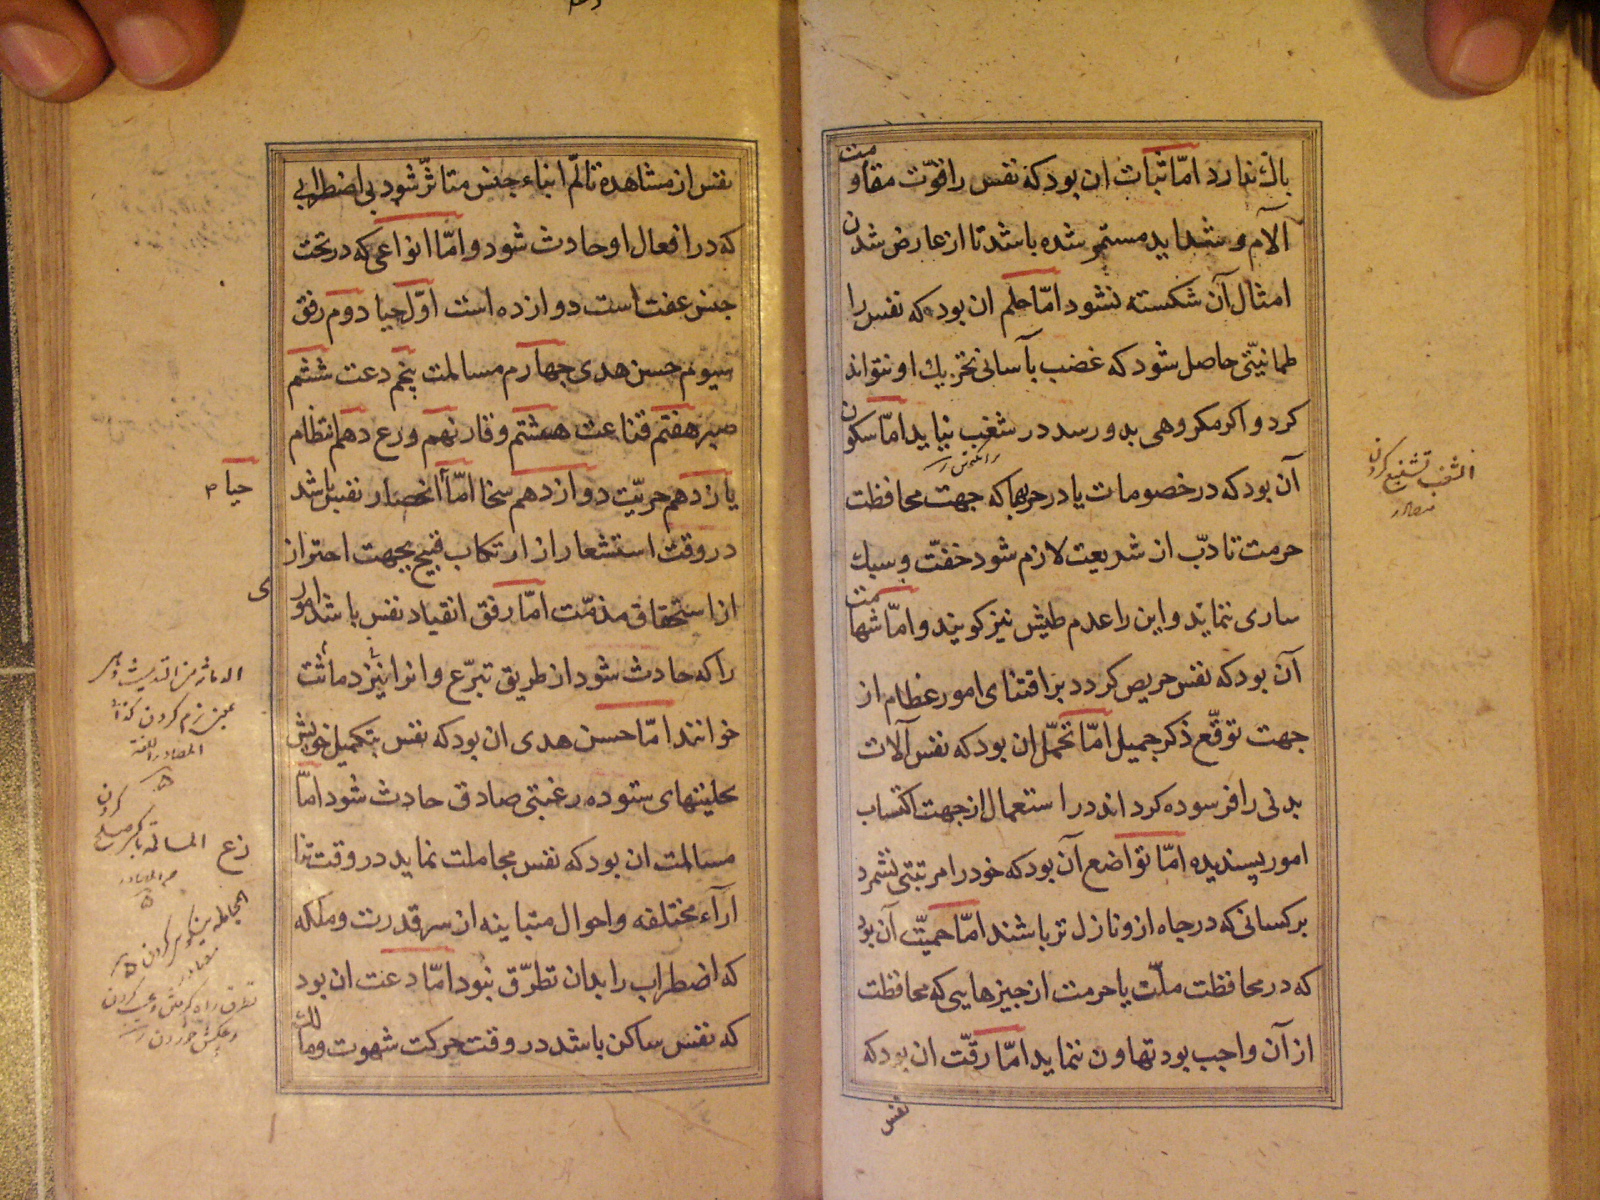 باك ندارد امّا ثبات ان بود كه نفس را قوّت مقاومت
آلام و شدايد مستمر شده باشد تا از عارض شدن
امثال آن شكسته نشود امّا حلم ان بود كه نفس را
طمانيّتى حاصل شود كه غضب بآسانى تحريك او نتواند
كرد و اكر مكروهى بدو رسد در شغب نيايد امّا سكون
آن بود كه در خصومات يا در حربها كه جهت محافظت
حرمت تا ذبّ از شريعت لازم شود خفّت و سبك
سارى ننمايد و اين را عدم طيش نيز كويند و امّا شهامت
آن بود كه نفس حريص كردد بر اقتناى امور عظام از
جهت توقّع ذكر جميل امّا تحمّل ان بود كه نفس آلات
بدنى را فرسوده كرداند در استعمال از جهت اكتساب
امور پسنديده امّا تواضع آن بود كه خود را مرتبتى نشمرد
بر كسانى كه در جاه ازو نازل تر باشند امّا حميّت آن بود
كه در محافظت ملّت يا حرمت از چيزهايى كه محافظت
از آن واجب بود تهاون ننمايد امّا رقّت ان بود كه
نفس
الشغب تشنيع كردن
مصادر
نفس از مشاهده تالّم ابناء جنس متاثّر شود بى اضطرابى
كه در افعال او حادث شود و امّا انواعى كه در تحت
جنس عفت است دوازده است اوّل حيا دوم رفق
سيوم حسن هدى چهارم مسالمت پنجم دعت ششم
صبر هفتم قناعت هشتم وقار نهم ورع دهم انتظام
يازدهم حريّت دوازدهم سخا امّا انحصار نفس باشد
در وقت استشعار از ارتكاب قبيح بجهت احتراز
از استحقاق مذمّت امّا رفق انقياد نفس باشد امور
را كه حادث شود از طريق تبرّع و انرا نيز دماثت
خوانند امّا حسن هدى ان بود كه نفس بتكميل خويش
بحليتهاى ستوده رغبتى صادق حادث شود امّا
مسالمت ان بود كه نفس مجاملت نمايد در وقت تنازع
آرآء مختلفه و احوال متباينه از سر قدرت و ملكه
كه اضطراب را بدان تطرّق نبود امّا دعت ان بود
كه نفس ساكن باشد در وقت حركت شهوت و مالك
حيا
المسالمة با كسى صلح كردن